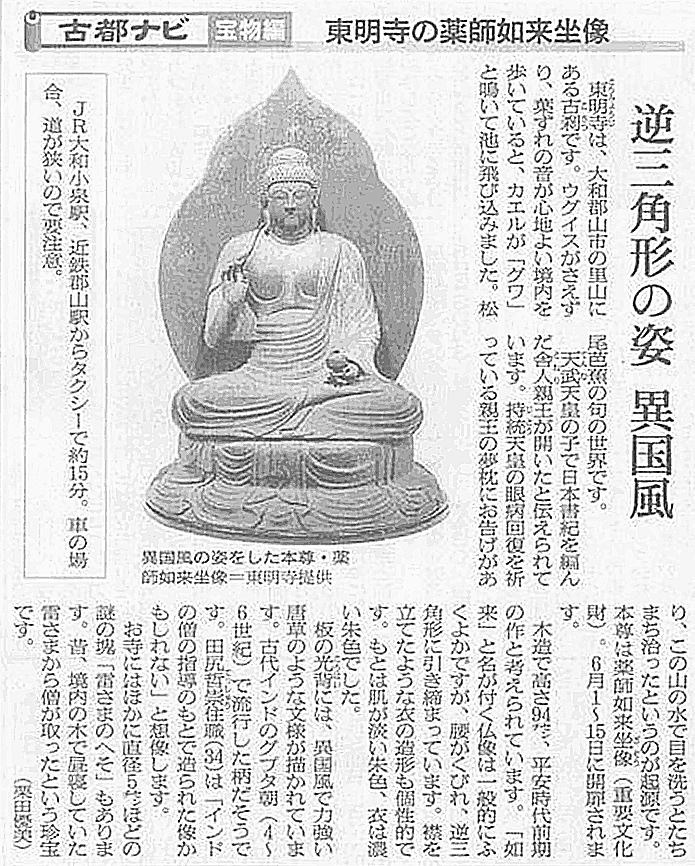 古都ナビ 宝物編 東明寺の薬師如来坐像
逆三角形の姿 異国風
東明寺は、大和郡山市の里山に
ある古刹です。ウグイスがさえず
り、葉ずれの音が心地よい境内を
歩いていると、カエルが「グワ」
と鳴いて池に飛び込みました。松
尾芭蕉の句の世界です。
天武天皇の子で日本書紀を編ん
だ舎人親王が開いたと伝えられて
います。持統天皇の眼病回復を祈
っている親王の夢枕にお告げがあ
り、この山の水で目を洗うとたち
まち治ったというのが起源です。
本尊は薬師如来坐像(重要文化
財)。6月1〜15日に開扉されま
す。
木造で高さ94㌢、平安時代前期
の作と考えられています。「如
来」と名が付く仏像は一般的にふ
くよかですが、腰がくびれ、逆三
角形に引き締まっています。襟を
立てたような衣の造形も個性的で
す。もとは肌が淡い朱色、衣は濃
い朱色でした。
板の光背には、異国風で力強い
唐草のような文様が描かれていま
す。古代インドのグプタ朝(4〜
6世紀)で流行した柄だそうで
す。田尻哲崇住職(34)は「インド
の僧の指導のもとで造られた像か
もしれない」と想像します。
お寺にはほかに直径5㌢ほどの
謎の塊「雷さまのへそ」もありま
す。昔、境内の木で昼寝していた
雷さまから僧が取ったという珍宝
です。
(栗田優美)
異国風の姿をした本尊・薬
師如来坐像=東明寺提供
JR大和小泉駅、近鉄郡山駅からタクシーで約15分。車の場
合、道が狭いので要注意。